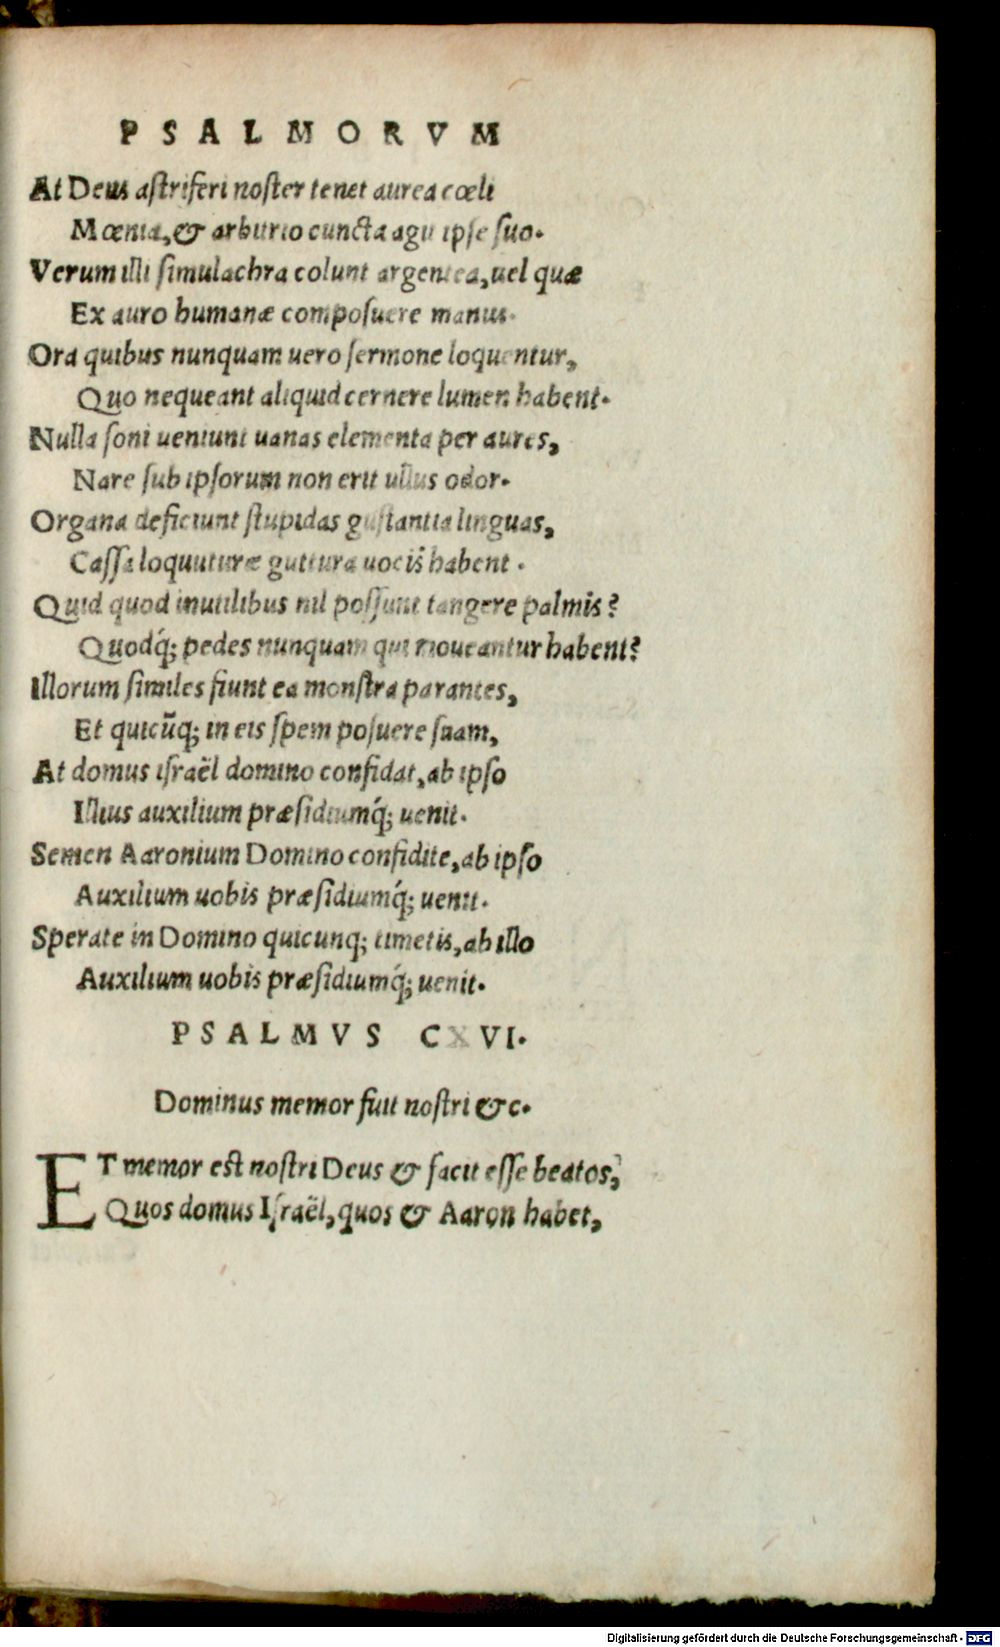 PSALMORVM
At Deus astriferi noster tenet aurea cœli
Mœnia, & arbitrio cuncta agit ipse suo.
Verum illi simulachra colunt argentea, uel quæ
Ex auro humanæ composuere manus.
Ora quibus nunquam uero sermone loquentur,
Quo nequeant aliquid cernere lumen habent.
Nulla soni ueniunt uanas elementa per aures,
Nare sub ipsorum non erit ullus odor.
Organa deficiunt stupidas gustantia linguas,
Cassa loquuturæ guttura uocis habent.
Quid quod inutilibus nil possunt tangere palmis?
Quodq́; pedes nunquam qui moueantur habent?
Illorum similes fiunt ea monstra parantes,
Et quicũq; in eis spem posuere suam,
At domus israël domino confidat, ab ipso
Illius auxilium præsidiumq́; uenit.
Semen Aaronium Domino confidite, ab ipso
Auxilium uobis præsidiumq́; uenit.
Sperate in Domino quicunq; timetis, ab illo
Auxilium uobis præsidiumq́; uenit.
PSALMVS CXVI.
Dominus memor fuit nostri &c.
ET memor est nostri Deus & facit esse beatos,
Quos domus Israël, quos & Aaron habet,
Digitalisierung gefördert durch die Deutsche Forschungsgemeinschaft - DFG